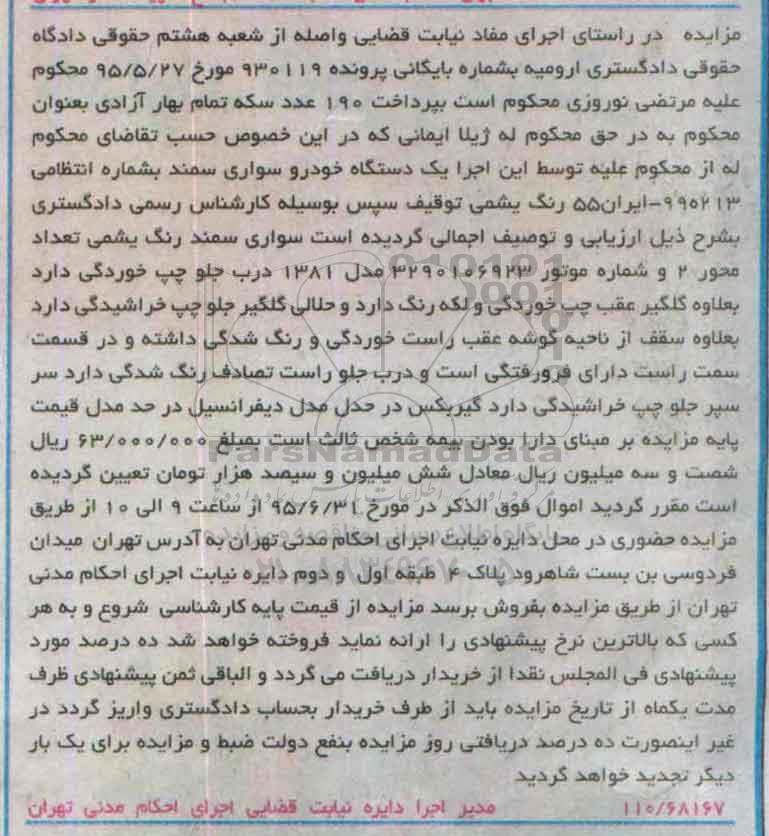 مزایده در راستای اجرای مفاد نیابت قضایی واصله از شعبه هشتم حقوقی دادگاه
حقوقی دادگستری ارومیه بشماره بایگانی پرونده ۹۳۰۱۱۹ مورخ ۹۵/۵/۲۷ محکوم
علیه مرتضی نوروزی محکوم است بپرداخت ۱۹۰ عدد سکه تمام بهار آزادی بعنوان
محکوم به در حق محکوم له ژیلا ایمانی که در این خصوص حسب تقاضای محکوم
له از محکوم علیه توسط این اجرا یک دستگاه خودرو سواری سمند بشماره انتظامی
۹۹۵۲۱۳-ایران۵۵ رنگ یشمی توقیف سپس بوسیله کارشناس رسمی دادگستری
بشرح ذیل ارزیابی و توصیف اجمالی گردیده است سواری سمند رنگ یشمی تعداد
محور ۲ و شماره موتور ۳۲۹۰۱۰۶۹۲۳ مدل ۱۳۸۱ درب جلو چپ خوردگی دارد
بعلاوه گلگیر عقب چپ خوردگی و لکه رنگ دارد و حلالی گلگیر جلو چپ خراشیدگی دارد
بعلاوه سقف از ناحیه گوشه عقب راست خوردگی و رنگ شدگی داشته و در قسمت
سمت راست دارای فرورفتگی است و درب جلو راست تصادف رنگ شدگی دارد سر
سپر جلو چپ خراشیدگی دارد گیربکس در حدل مدل دیفرانسیل در حد مدل قیمت
پایه مزایده بر مبنای دارا بودن بیمه شخص ثالث است بمبلغ ۶۳/۰۰۰/۰۰۰ ریال
شصت و سه میلیون ریال معادل شش میلیون و سیصد هزار تومان تعیین گردیده
است مقرر گردید اموال فوق الذکر در مورخ ۹۵/۶/۳۱ از ساعت ۹ الی ۱۰ از طریق
مزایده حضوری در محل دایره نیابت اجرای احکام مدنی تهران به آدرس تهران میدان
فردوسی بن بست شاهرود پلاک ۴ طبقه اول و دوم دایره نیابت اجرای احکام مدنی
تهران از طریق مزایده بفروش برسد مزایده از قیمت پایه کارشناسی شروع و به هر
کسی که بالاترین نرخ پیشنهادی را ارائه نماید فروخته خواهد شد ده درصد مورد
پیشنهادی فی المجلس نقدا از خریدار دریافت می گردد و الباقی ثمن پیشنهادی ظرف
مدت یکماه از تاریخ مزایده باید از طرف خریدار بحساب دادگستری واریز گردد در
غیر اینصورت ده درصد دریافتی روز مزایده بنفع دولت ضبط و مزایده برای یک بار
دیگر تجدید خواهد گردید
۱۱۰/۶۸۱۶۷ مدیر اجرا دایره نیابت قضایی اجرای احکام مدنی تهران
ParsNamadData